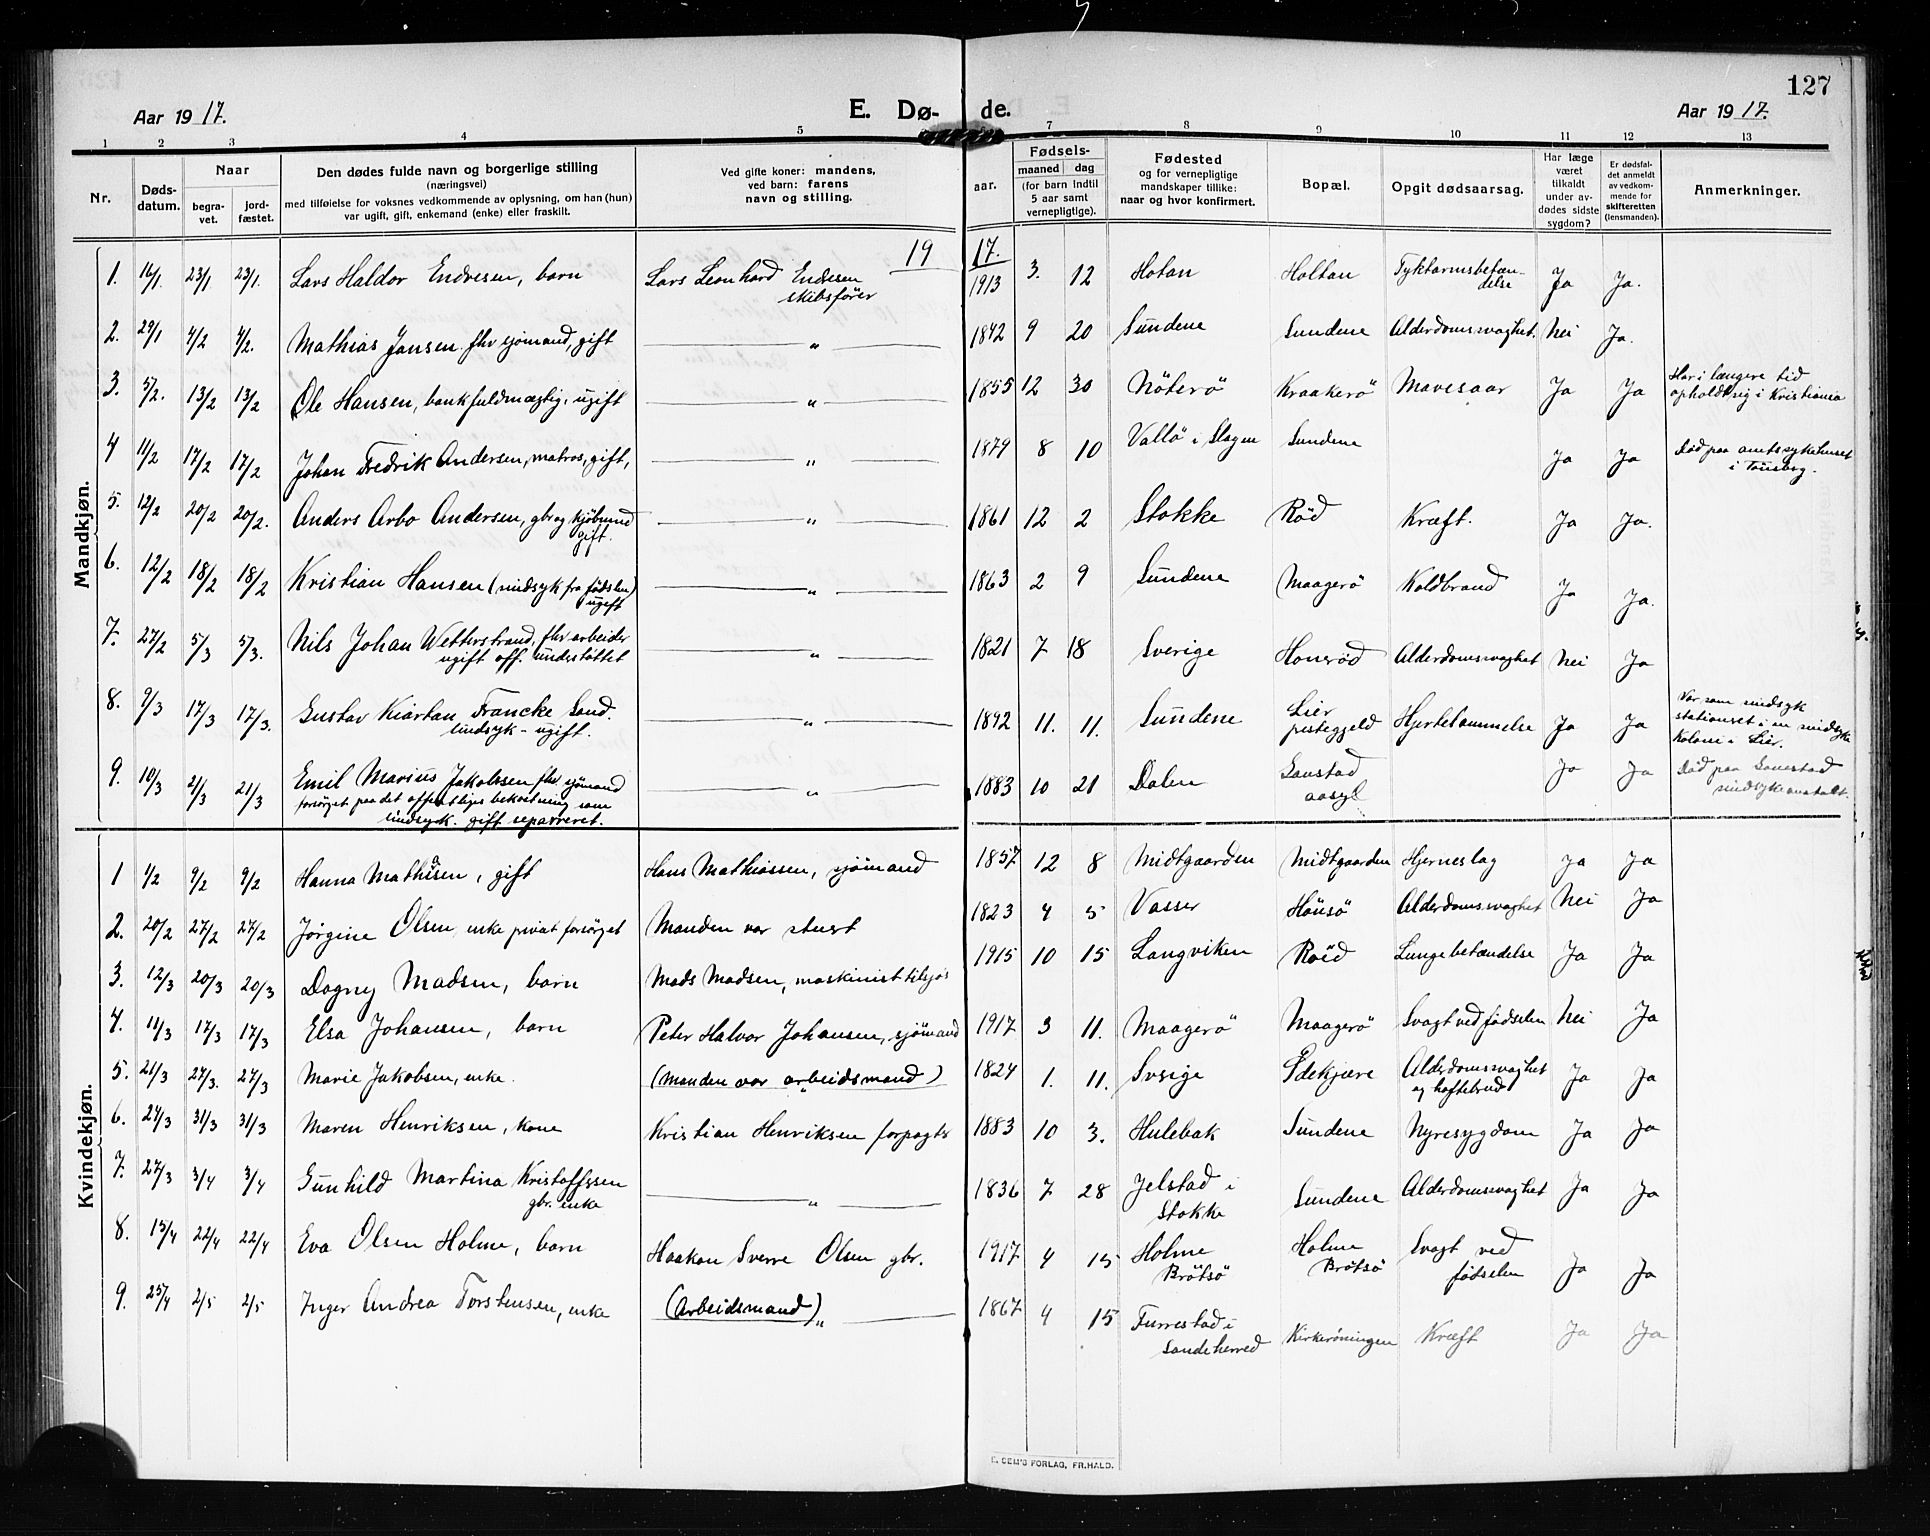 127
Aar 1917. E. Dø- de. Aar 1917.
1 2 3 4 5 7 8 9 10 11 12 13
Nr. Døds-datum. Naar begra-vet. jord-fæstet. Den dødes fulde navn og borgerlige stilling (næringsvei) med tilføielse for voksnes vedkommende av oplysning, om han (hun) var ugift, gift, enkemand (enke) eller fraskilt. Ved gifte koner: mandens, ved barn: farens navn og stilling. aar. Fødsels- maaned dag (for barn indtil 5 aar samt vernepligtige). Fødested og for vernepligtige mandskaper tillike: naar og hvor konfirmert. Bopæl. Opgit dødsaarsag. Har læge været tilkaldt under av-dødes sidste sygdom? Er dødsfal-det anmeldt av vedkom-mende for skifteretten (lensmanden). Anmerkninger.
Mandkjøn.
1917.
1. 16/1 23/1 23/1. Lars Haldor Endresen, barn Lars Leonhard Endresen skibsfører 1913 3. 12 Hotan Holtan Tyktarmsbetæn-delse Ja Ja.
2. 29/1 4/2 4/2. Mathias Jansen fhv sjømand, gift — " — 1842 9 20 Sundene Sundene Alderdomssvaghet. Nei Ja.
3. 5/2. 13/2 13/2 Ole Hansen, bankfuldmægtig, ugift — " — 1855 12 30 Nøterø Kraakerø Mavesaar Ja Ja Har i længere tid opholdt sig i Kristiania
4 11/2 17/2 17/2 Johan Fredrik Andersen, matros, gift, — " — 1879 8 10 Vallø i Slagen Sundene Ja Ja Død paa amtssykehuset i Tønsberg.
5. 12/2 20/2 20/2. Anders Arbo Andersen, gbr og kjøbmand gift. — " — 1861 12 2 Stokke Rød Kræft. Ja Ja.
6. 12/2 18/2 18/2 Kristian Hansen (sindsyk fra fødslen) ugift — " — 1863 2 9 Sundene Maagerø Koldbrand Ja Ja.
7. 27/2 5/3 5/3. Nils Johan Wetterstrand, fhv arbeider ugift off. understøttet — " — 1821 7 18 Sverige Honerød Alderdomssvaghet Nei Ja
8. 9/3 17/3 17/3. Gustav Kiartan Francke Sand. sindsyk - ugift. — " — 1892 11. 11. Sundene Lier prestegjeld Hjertelammelse Ja Ja Var som sindsyk stationert i en sindsyke Koloni i Lier.
9. 10/3 21/3 21/3 Emil Marius Jakobssen fhv sjømand forsørget paa det offentliges bekostning som sindsyk. gift separreret. — " — 1883 10 21 Dalen Gaustad aasyl Ja Ja Død paa Gaustad sindsykeanstalt.
Kvindekjøn.
1 1/2 9/2 9/2 Hanna Mathisen, gift Hans Mathiassen, sjømand 1857 12 8 Midtgaarden Midtgaarden Hjerneslag Ja Ja
2. 20/2 27/2 27/2 Jørgine Olsen, enke privat forsørget Manden var stuert 1823 4 5 Vasser Housø Alderdomssvaghet Nei Ja
3. 12/3 20/3 20/3 Dagny Madsen, barn Mads Madsen, maskinist tilsjøs 1915 10 15 Langviken Røed Lungebetændelse Ja Ja
4. 11/3 17/3 17/3 Elsa Johansen, barn Peter Halvor Johansen, sjømand 1917 3 11. Maagerø Maagerø Svagt ved fødselen Nei Ja
5. 21/3 27/3. 27/3 Marie Jakobsen, enke. (Manden var arbeidsmand) 1824 1. 11. Sverige Edekjære Alderdomssvaghet og hoftebrud Ja Ja
6. 24/3 31/3 31/3 Maren Henriksen, kone Kristian Henriksen forpagter 1883 10 3. Hulebak Sundene Nyresygdom Ja Ja
7. 27/3 3/4 3/4 Gunhild Martina Kristoffssen gbr. enke — " — 1836 7 28 Jelstad i Stokke Sundene Alderdomssvaghet Ja Ja
8. 15/4 22/4 22/4 Eva Olsen Holme, barn Haakon Sverre Olsen gbr. 1917 4 15 Holme Brøtsø Holme Brøtsø Svagt ved fødselen Ja Ja
9. 25/4 2/5 2/5 Inger Andrea Torstensen, enke (Arbeidsmand) " — 1867 4 15 Furrestad i Sandeherred Kirkerøningen Kræft Ja Ja
E. SEM'S FORLAG, FR.HALD.